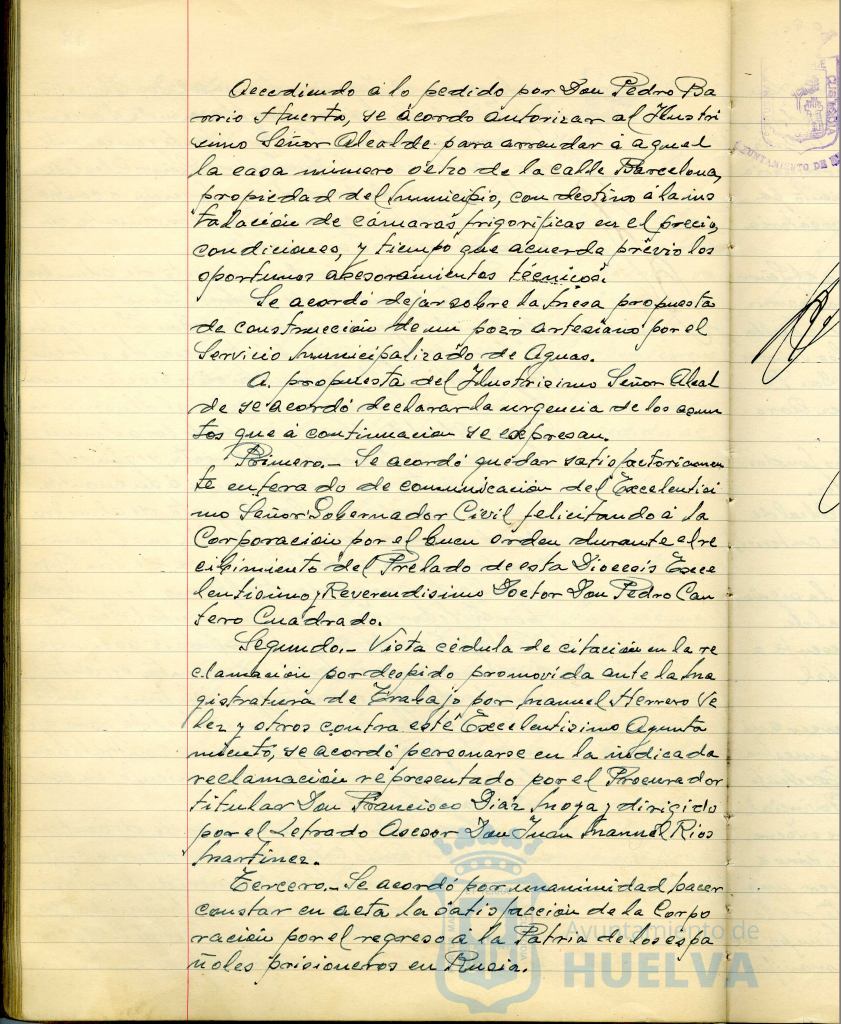 Accediendo á lo pedido por Don Pedro Ba
rrio Huerto, se acordó autorizar al Ilustri
simo Señor Alcalde para arrendar á aquel
la casa número ocho de la calle Barcelona,
propiedad del Municipio, con destino á la ins
talación de cámaras frigorificas en el precio,
condiciones, y tiempo que acuerda previo los
oportunos asesoramientos técnicos.
Se acordó dejar sobre la mesa propuesta
de construcción de un pozo artesiano por el
Servicio Municipalizado de Aguas.
A propuesta del Ilustrisimo Señor Alcal
de se acordó declarar la urgencia de los asun
tos que á continuación se expresan.
Primero.- Se acordó quedar satisfactoriamen
te enterado de comunicación del Excelentisi
mo Señor Gobernador Civil felicitando á la
Corporación por el buen orden durante el re
cibimiento del Prelado de esta Diocesis Exce
lentisimo y Reverendisimo Doctor Don Pedro Can
tero Cuadrado.
Segundo.- Vista cédula de citación en la re
clamación por despido promovida ante la Ma
gistratura de Trabajo por Manuel Herrero Ve
lez y otros contra este Excelentisimo Ayunta
miento, se acordó personarse en la indicada
reclamación representado por el Procurador
titular Don Francisco Diaz Moya y dirigido
por el Letrado Asesor Don Juan Manuel Rios
Martinez.
Tercero.- Se acordó por unanimidad hacer
constar en acta la satisfacción de la Corpo
ración por el regreso á la Patria de los espa
ñoles prisioneros en Rusia.
Ayuntamiento de
HUELVA
AYUNTAMIENTO DE